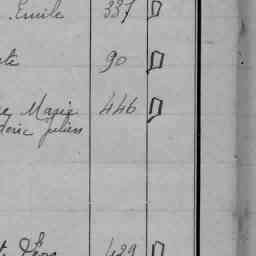 Emile 337 D
te 90 D
e Marie 446 D
deric julien
Léon 429 D